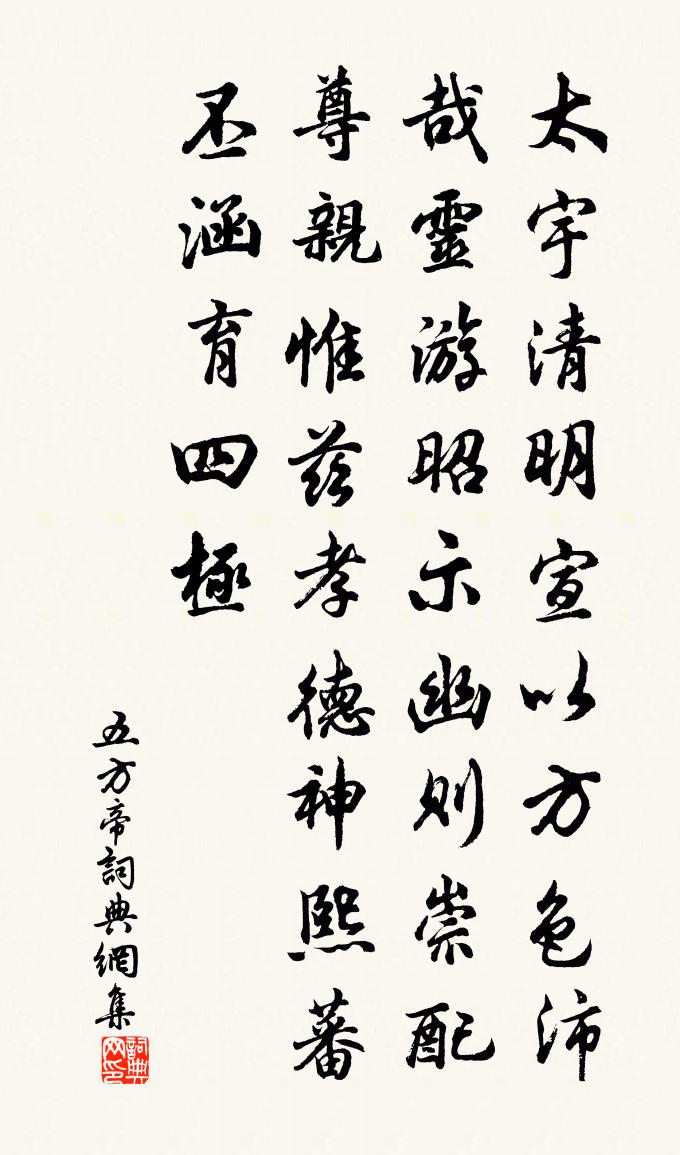 太宇清明宣以方色沛
哉靈游昭示幽則崇配
尊親惟茲孝德神熙蕃
丕涵育四極
五方帝詞典網集
詞典网印